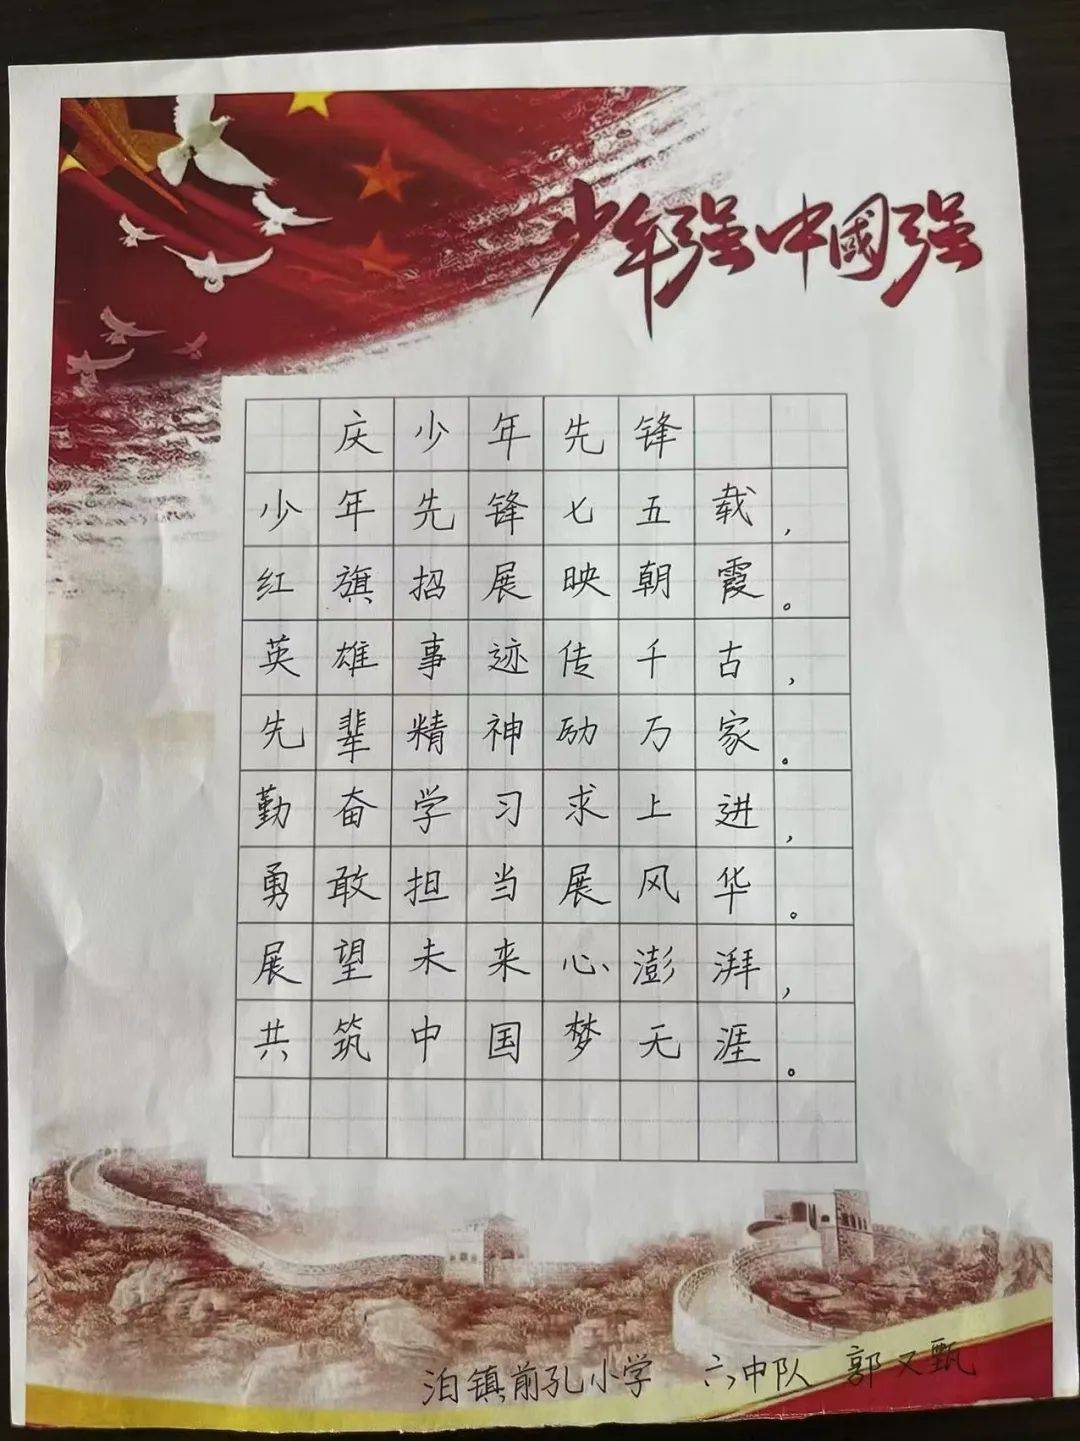 少年强中國强
庆少年先锋
少年先锋七五载，
红旗招展映朝霞。
英雄事迹传千古，
先辈精神励万家。
勤奋学习求上进，
勇敢担当展风华。
展望未来心澎湃，
共筑中国梦无涯。
泊镇前孔小学 六中队 郭又甄